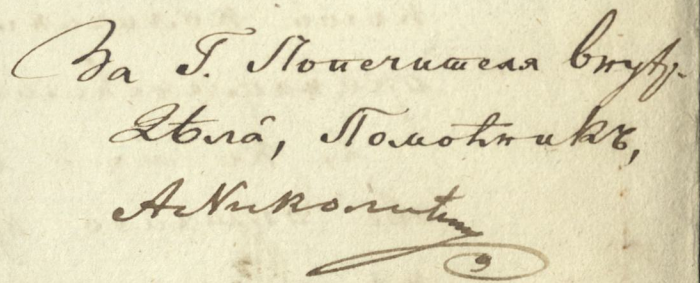 За Г. Попечителя внутр.
Дѣла̂, Помоћникъ,
А Николићъ